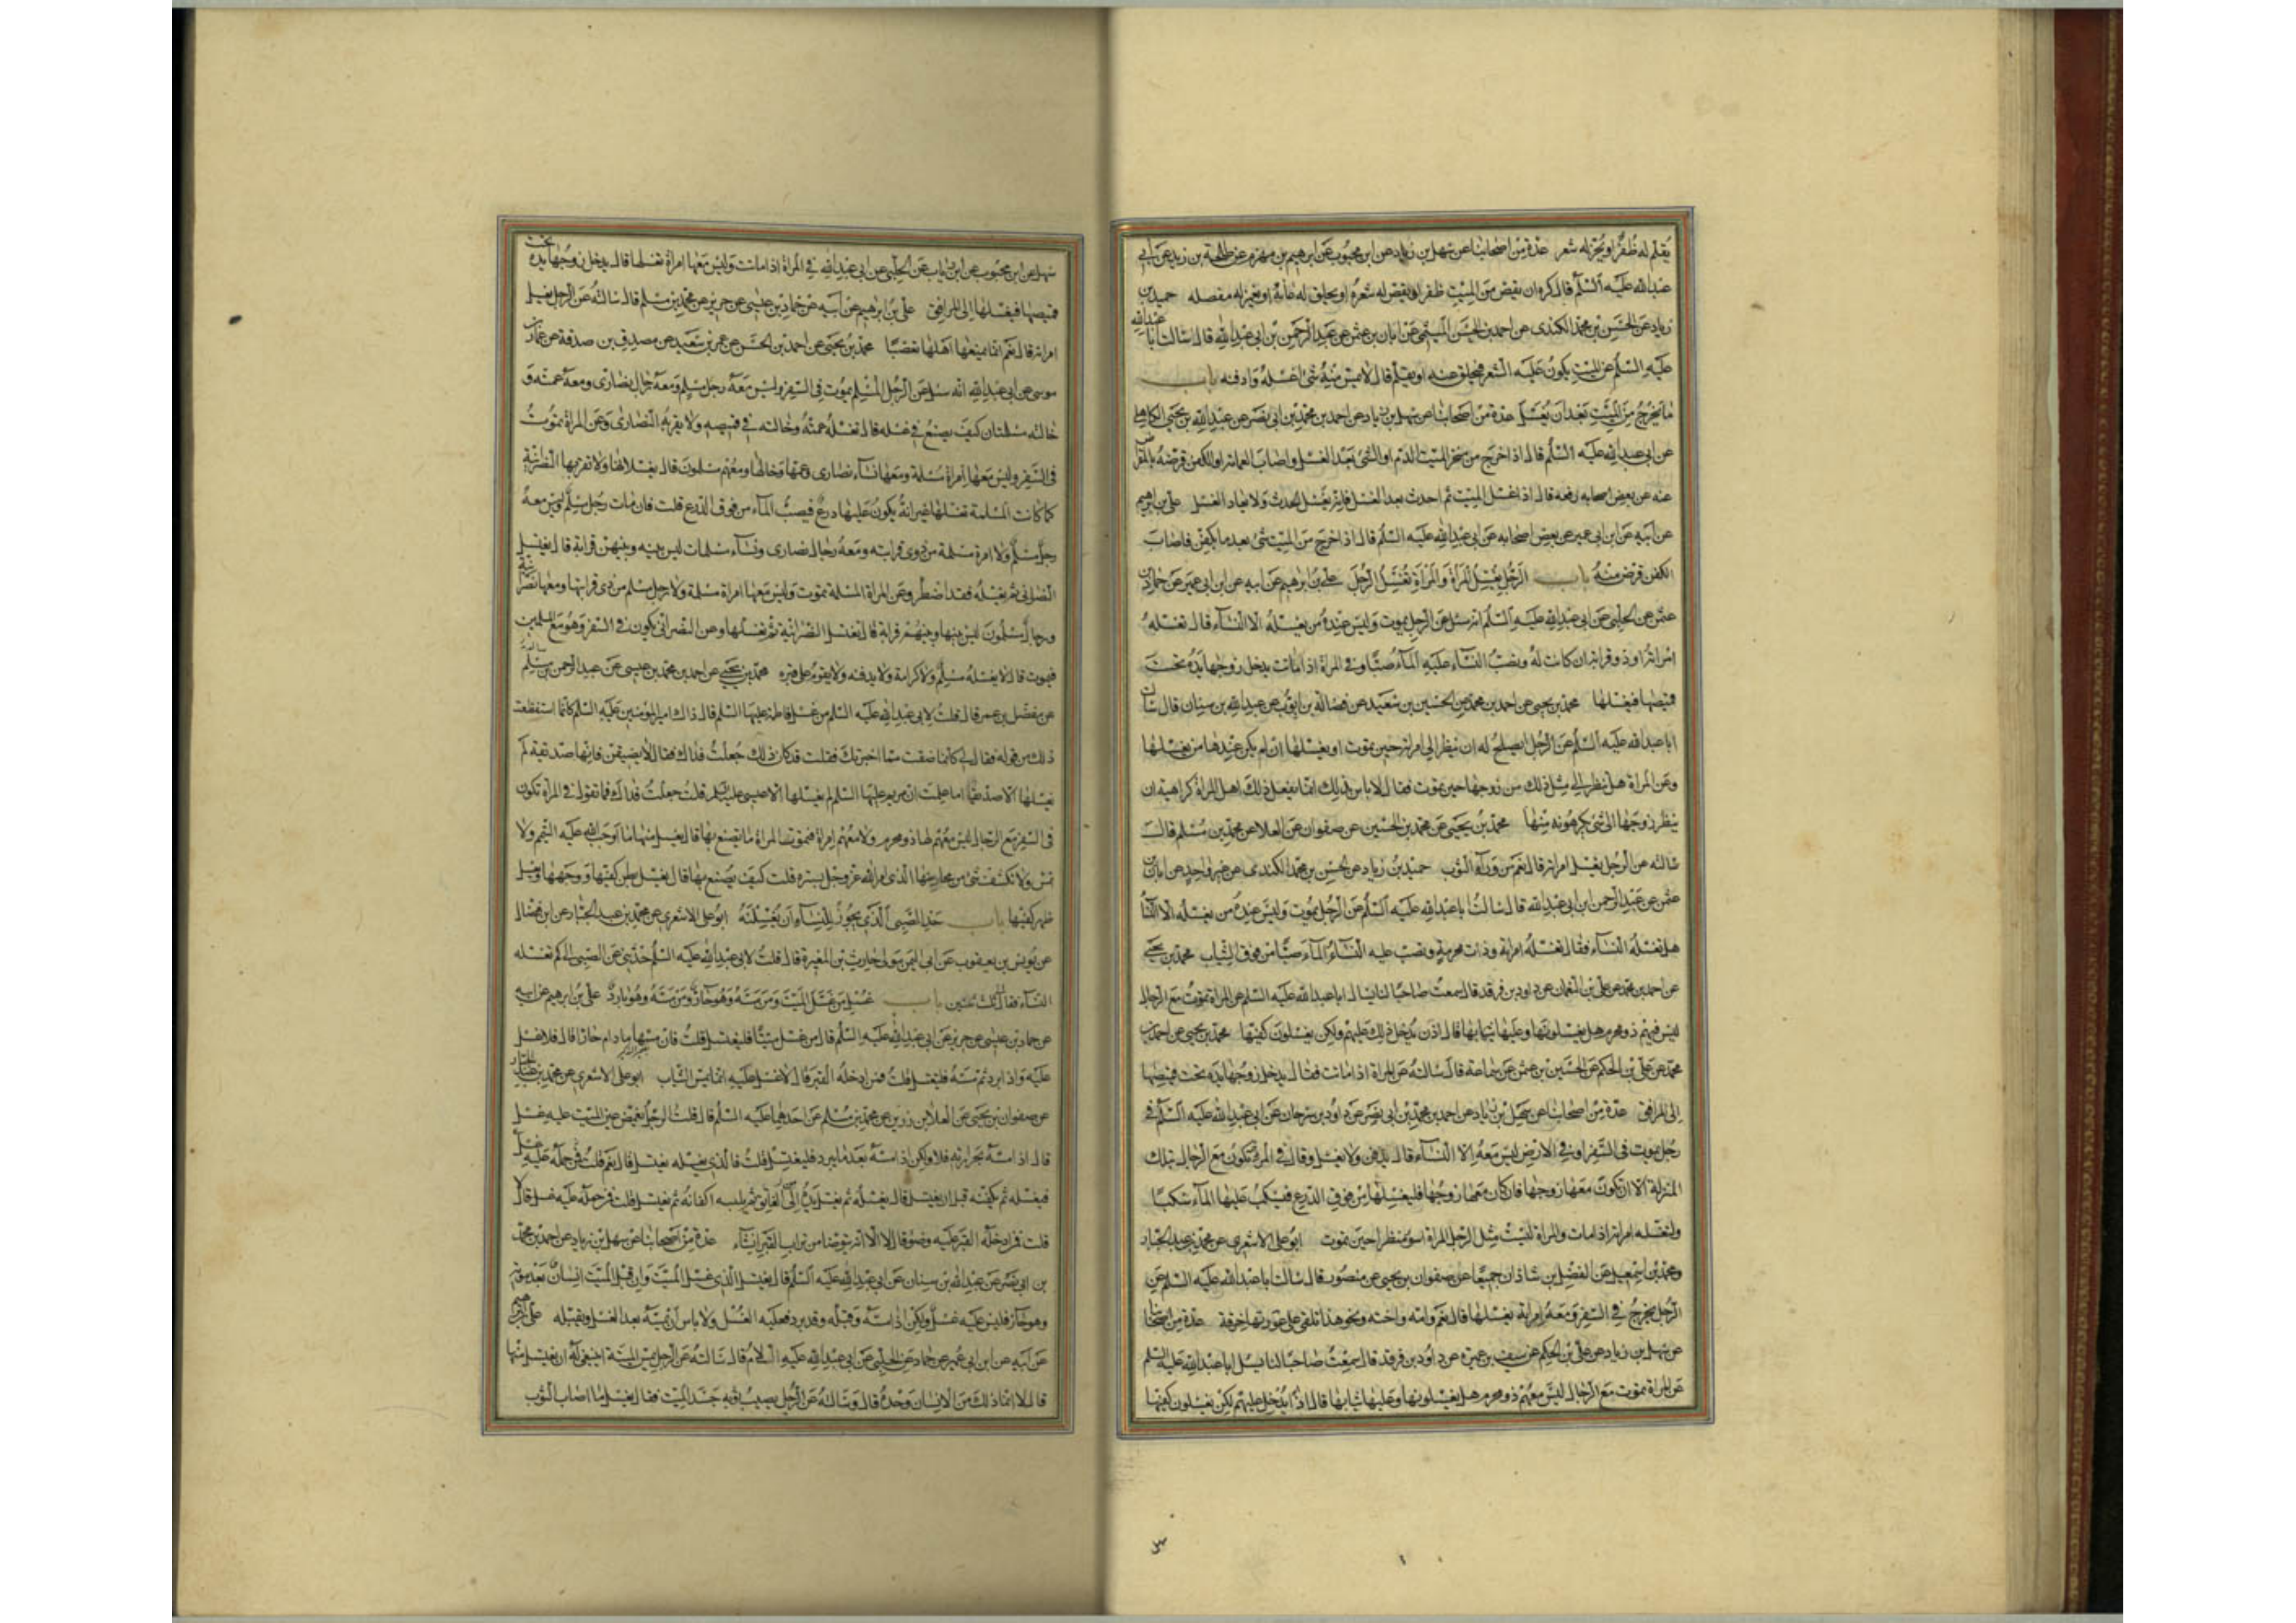 يقلم له ظفر او يجز له شعر عدة من اصحابنا عن سهل بن زياد عن ابن محبوب عن ابرهيم بن مهزم عن طلحة بن زيد عن ابي
عبد الله عليه السلم قال كره ان يقص من الميت ظفر او يقص له شعر او يحلق له عانة او يغمز له مفصله حميد بن
زياد عن الحسن بن محمد الكندى عن احمد بن الحسن الميثمي عن ابان بن عثمن عن عبد الرحمن بن ابى عبد الله قال سالت ابا عبد الله
عليه السلم عن الميت يكون عليه الشعر فيحلق عنه او يقلم قال لا يمس منه شئ اغسله وادفنه باب
ما يخرج من الميت بعد ان يغسل عدة من اصحابنا عن سهل بن زياد عن احمد بن محمد بن ابى نصر عن عبد الله بن يحيى الكاهلي
عن ابى عبد الله عليه السلم قال اذا خرج من منخر الميت الدم او الشئ بعد الغسل واصاب العمامة او الكفن قرضه بالمقراض
عنه عن بعض اصحابه رفعه قال اذا غسل الميت ثم احدث بعد الغسل فانه يغسل الحدث ولا يعاد الغسل على بن ابرهيم
عن ابيه عن ابن ابى عمير عن بعض اصحابه عن ابى عبد الله عليه السلم قال اذا خرج من الميت شئ بعد ما يكفن فاصاب
الكفن قرض منه باب الرجل يغسل المراة والمراة تغسل الرجل على بن ابرهيم عن ابيه عن ابن ابى عمير عن حماد بن
عثمن عن الحلبى عن ابى عبد الله عليه السلم انه سئل عن الرجل يموت وليس عنده من يغسله الا النسآء قال تغسله
امراته او ذو قرابة ان كانت له ويصب النسآء عليه المآء صبا وفى المراة اذا ماتت يدخل زوجها يده تحت
قميصها فيغسلها محمد بن يحيى عن احمد بن محمد عن الحسين بن سعيد عن فضالة بن ايوب عن عبد الله بن سنان قال سالت
ابا عبد الله عليه السلم عن الرجل ايصلح له ان ينظر الى امراته حين تموت او يغسلها ان لم يكن عندها من يغسلها
وعن المراة هل تنظر الى مثل ذلك من زوجها حين يموت فقال لا باس بذلك انما يفعل ذلك اهل المراة كراهية ان
ينظر زوجها الى شئ يكرهونه منها محمد بن يحيى عن محمد بن الحسين عن صفوان عن العلا عن محمد بن مسلم قال
سالته عن الرجل يغسل امراته قال نعم من ورآء الثوب حميد بن زياد عن الحسن بن محمد الكندى عن غير واحد عن ابان بن
عثمن عن عبد الرحمن ابن ابى عبد الله قال سالت ابا عبد الله عليه السلم عن الرجل يموت وليس عنده من يغسله الا النسآء
هل تغسله النسآء فقال تغسله امراته وذات محرمه وتصب عليه النسآء المآء صبا من فوق الثياب محمد بن يحيى
عن احمد بن محمد عن على بن النعمان عن داود بن فرقد قال سمعت صاحبا لنا يسال ابا عبد الله عليه السلم عن المراة تموت مع الرجال
ليس فيهم ذو محرم هل يغسلونها وعليها ثيابها قال اذن يدخل ذلك عليهم ولكن يغسلون كفيها محمد بن يحيى عن احمد بن
محمد عن على بن الحكم عن الحسين بن عثمن عن سماعة قال سالته عن المراة اذا ماتت فقال يدخل زوجها يده تحت قميصها
الى المرافق عدة من اصحابنا عن سهل بن زياد عن احمد بن محمد بن ابى نصر عن داود بن سرحان عن ابى عبد الله عليه السلم فى
رجل يموت فى السفر او فى الارض ليس معه الا النسآء قال يدفن ولا يغسل وقال فى المراة تكون مع الرجال بتلك
المنزلة الا ان تكون معها زوجها فان كان معها زوجها فليغسلها من فوق الدرع فيسكب عليها المآء سكبا
ولتغسله امراته اذا مات والمراة ليست مثل الرجل المراة اسوء منظرا حين تموت ابو على الاشعرى عن محمد بن عبد الجبار
ومحمد بن اسمعيل عن الفضل بن شاذان جميعا عن صفوان بن يحيى عن منصور قال سالت ابا عبد الله عليه السلم عن
الرجل يخرج فى السفر ومعه امراته يغسلها قال نعم وامه واخته ونحو هذا تلقى على عورتها خرقة عدة من اصحابنا
عن سهل بن زياد عن على بن الحكم عن سيف بن عميرة عن داود بن فرقد قال سمعت صاحبا لنا يسل ابا عبد الله عليه السلم
عن المراة تموت مع الرجال ليس معهم ذو محرم هل يغسلونها وعليها ثيابها قال اذا يدخل عليهم لكن يغسلون كفيها
سهل عن ابن محبوب عن ابن رياب عن الحلبى عن ابى عبد الله فى المراة اذا ماتت وليس معها امراة تغسلها قال يدخل زوجها يده تحت
قميصها فيغسلها الى المرافق على بن ابرهيم عن ابيه عن حماد بن عيسى عن حريز عن محمد بن مسلم قال سالته عن الرجل يغسل
امراته قال نعم انما يمنعها اهلها تعصبا محمد بن يحيى عن احمد بن الحسن عن عمرو بن سعيد عن مصدق بن صدقة عن عمار بن
موسى عن ابى عبد الله انه سئل عن الرجل المسلم يموت فى السفر وليس معه رجل مسلم ومعه رجال نصارى ومعه عمته و
خالته مسلمتان كيف يصنع فى غسله قال تغسله عمته وخالته فى قميصه ولا يقربه النصارى وعن المراة تموت
فى السفر وليس معها امراة مسلمة ومعها نسآء نصارى وعمها وخالها ومعهم مسلمون قال يغسلانها ولا تقربها النصرانية
كما كانت المسلمة تغسلها غير انه يكون عليها درع فيصب المآء من فوق الدرع قلت فان مات رجل مسلم وليس معه
رجل مسلم ولا امرة مسلمة من ذوى قرابته ومعه رجال نصارى ونسآء مسلمات ليس بينه وبينهن قرابة قال يغتسل
النصرانى ثم يغسله فقد اضطر وعن المراة المسلمة تموت وليس معها امراة مسلمة ولا رجل مسلم من ذى قرابتها ومعها نصرانية
ورجال مسلمون ليس بينها وبينهم قرابة قال تغتسل النصرانية ثم تغسلها وعن النصرانى يكون فى السفر وهو مع المسلمين
فيموت قال لا يغسله مسلم ولا كرامة ولا يدفنه ولا يقوم على قبره محمد بن يحيى عن احمد بن محمد بن عيسى عن عبد الرحمن بن سالم
عن مفضل بن عمر قال قلت لابى عبد الله عليه السلم من غسل فاطمة عليها السلم قال ذاك امير المؤمنين عليه السلم كانما استفظعت
ذلك من قوله فقال لى كانما ضقت مما اخبرتك فقلت قد كان ذلك جعلت فداك فقال لا يضيقن فانها صديقة لم
يغسلها الا صديق اما علمت ان مريم عليها السلم لم يغسلها الا عيسى عليه السلم قلت جعلت فداك فما تقول فى المراة تكون
فى السفر مع الرجال ليس معهم لها ذو محرم ولا معهم امراة فتموت المراة ما يصنع بها قال يغسل منها ما اوجب الله عليه التيمم ولا
تمس ولا تكشف شئ من محاسنها الذى امر الله عز وجل بستره قلت كيف يصنع بها قال يغسل بطن كفيها ووجهها ويغسل
ظهر كفيها باب حد الصبى الذى يجوز للنسآء ان يغسلنه ابو على الاشعرى عن محمد بن عبد الجبار عن ابن فضال
عن يونس بن يعقوب عن ابى النمير مولى حارث بن المغيرة قال قلت لابى عبد الله عليه السلم حدثنى عن الصبى الى كم تغسله
النسآء فقال الى ثلث سنين باب غسل من غسل الميت ومن مسه وهو حار ومن مسه وهو بارد على بن ابرهيم عن ابيه
عن حماد بن عيسى عن حريز عن ابى عبد الله عليه السلم قال من غسل ميتا فليغتسل قلت فان مسه ما دام حارا قال فلا غسل
عليه واذا برد ثم مسه فليغتسل قلت فمن ادخله القبر قال لا غسل عليه انما يمس الثياب ابو على الاشعرى عن محمد بن عبد الجبار
عن صفوان بن يحيى عن العلا بن رزين عن محمد بن مسلم عن احدهما عليه السلم قال قلت الرجل يغمض عين الميت عليه غسل
قال اذا مسه بحرارته فلا ولكن اذا مسه بعد ما يبرد فليغتسل قلت فالذى يغسله يغتسل قال نعم قلت
فيغسله ثم يكفنه قبل ان يغتسل قال يغسله ثم يغسل يديه من العاتق ثم يلبسه اكفانه ثم يغتسل قلت فمن حمله عليه غسل قال لا
قلت فمن ادخله القبر عليه وضوء قال لا الا ان يتوضا من تراب القبر ان شآء عدة من اصحابنا عن سهل بن زياد عن احمد بن محمد
بن ابى نصر عن عبد الله بن سنان عن ابى عبد الله عليه السلم قال يغتسل الذى غسل الميت وان قبل الميت انسان بعد موته
وهو حار فليس عليه غسل ولكن اذا مسه وقبله وقد برد فعليه الغسل ولا باس ان يمسه بعد الغسل ويقبله على بن ابرهيم
عن ابيه عن ابن ابى عمير عن حماد عن الحلبى عن ابى عبد الله عليه السلام قال سالته عن الرجل يمس الميتة اينبغى له ان يغتسل منها
قال لا انما ذلك من الانسان وحده قال وسالته عن الرجل يصيب ثوبه جسد الميت فقال يغسل ما اصاب الثوب